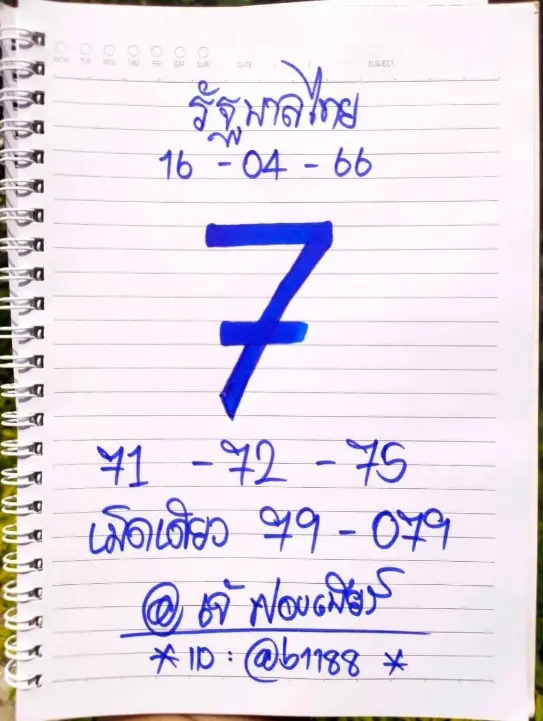 MON TUE WED THU FRI SAT SUN DATE / / SUBJECT
รัฐบาลไทย
16 - 04 - 66
7
71 - 72 - 75
เม็ดเดียว 79 - 079
@ เจ๊ ฟองเบียร์
* ID : @b1188 *